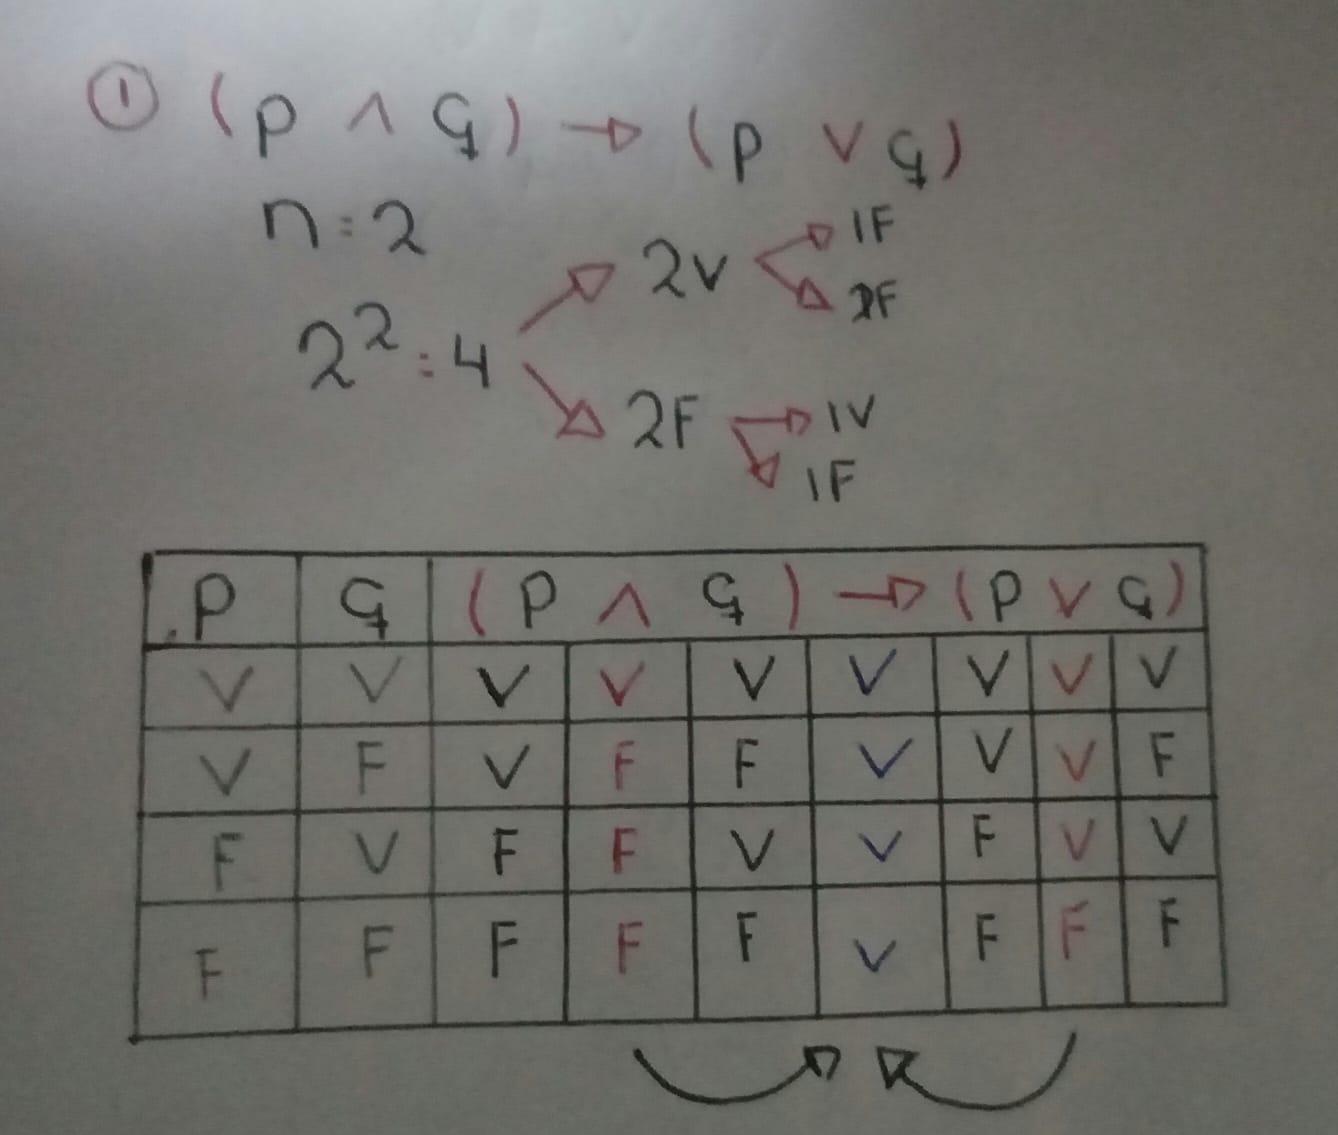 ① (p ∧ q) → (p ∨ q)
n = 2
2² = 4 → 2V → 1F
→ 2F
→ 2F → 1V
→ 1F
p q (p ∧ q) → (p ∨ q)
V V V V V V V V V
V F V F F V V V F
F V F F V V F V V
F F F F F V F F F